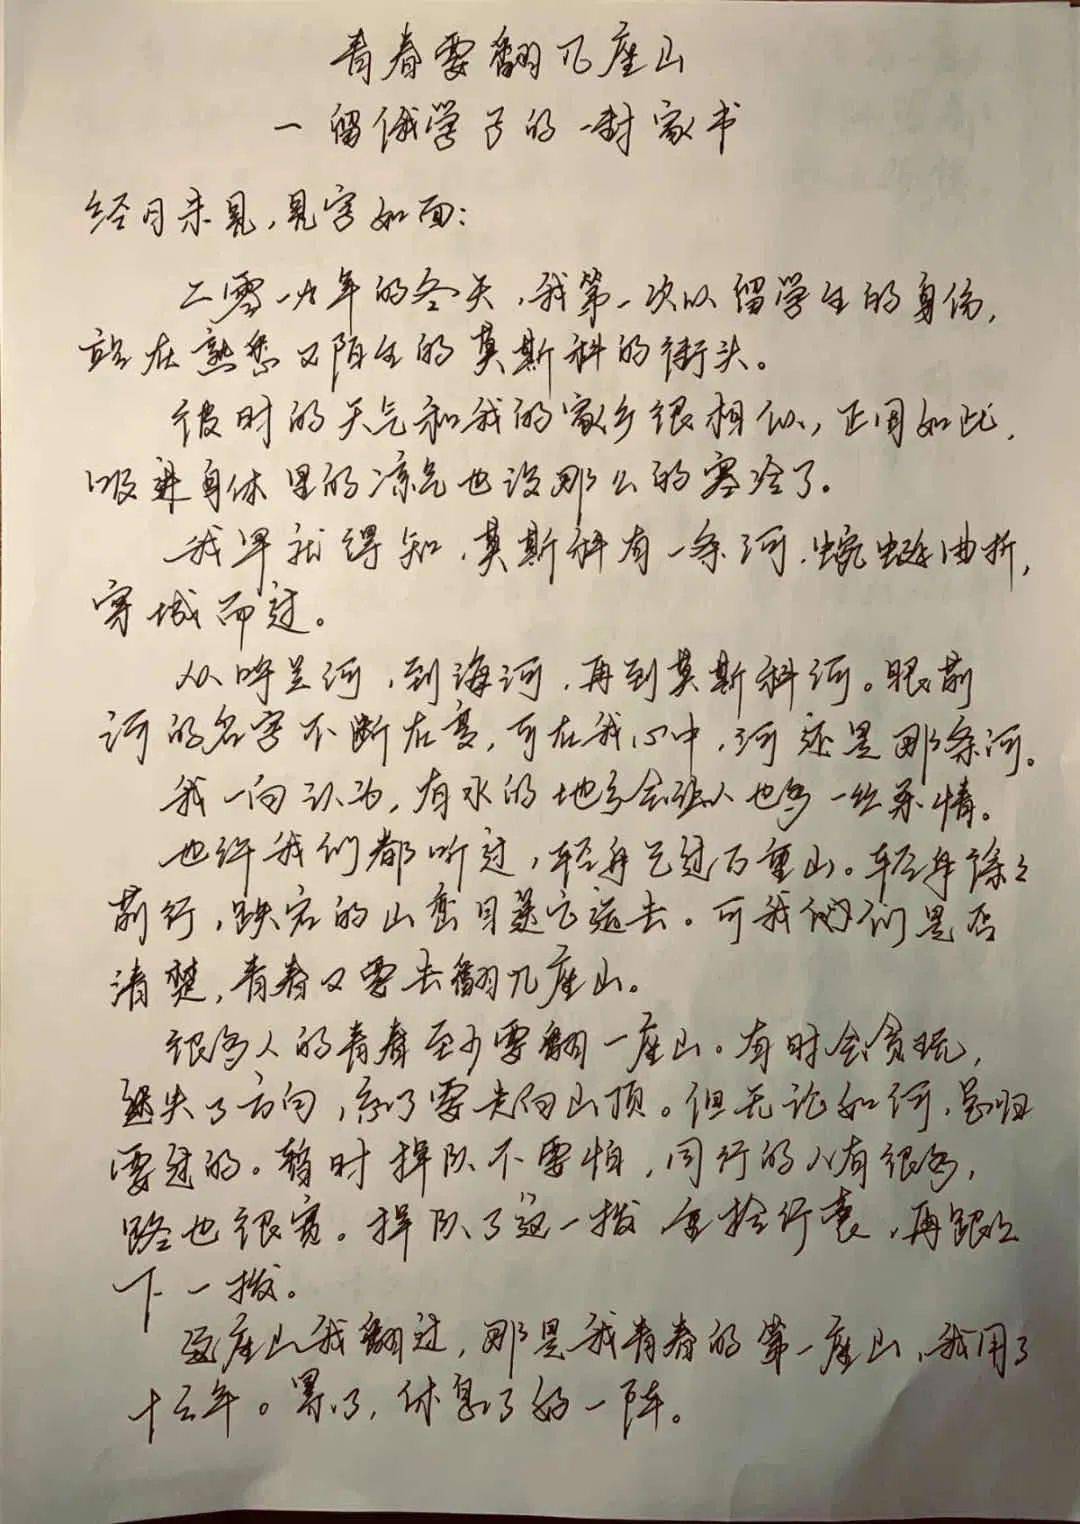 青春要翻几座山
一留俄学子的一封家书
经月未见，见字如面：
二零一九年的冬天，我第一次以留学生的身份，
站在熟悉又陌生的莫斯科的街头。
彼时的天气和我的家乡很相似，正因如此，
吸进身体里的凉气也没那么的寒冷了。
我早就得知，莫斯科有一条河，蜿蜒曲折，
穿城而过。
从呼兰河，到海河，再到莫斯科河。眼前
河的名字不断在变，可在我心中，河还是那条河。
我一向认为，有水的地方会让人也多一丝柔情。
也许我们都听过，轻舟已过万重山。轻舟徐徐
前行，跌宕的山峦目送它远去。可我们是否
清楚，青春又要去翻几座山。
很多人的青春至少要翻一座山。有时会贪玩，
迷失了方向，忘了要走向山顶。但无论如何，总归
要过的。暂时掉队不要怕，同行的人有很多，
路也很宽。掉队了这一拨 重拾行囊，再跟上
下一拨。
这座山我翻过，那是我青春的第一座山，我用了
十三年。累了，休息了好一阵。